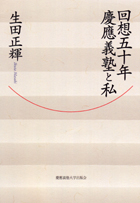 回想五十年
慶應義塾と私
生田正輝
慶應義塾大学出版会